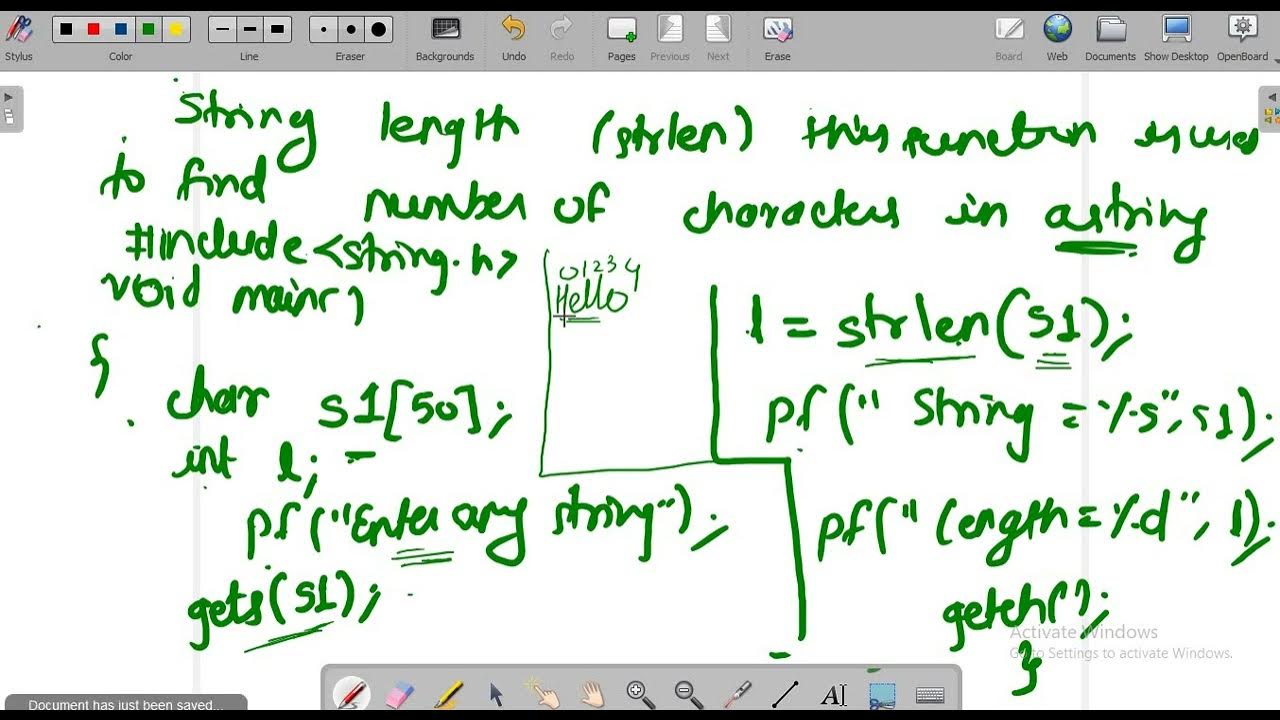 Stylus
Color
Line
Eraser
Backgrounds
Undo
Redo
Pages
Previous
Next
Erase
Board
Web
Documents
Show Desktop
OpenBoard
String length (strlen) this function is used
to find number of characters in a string
#include <string.h>
void main()
{
char s1[50];
int l;
pf("Enter any string");
gets(s1);
0 1 2 3 4
Hello
l = strlen(s1);
pf(" String = %s", s1);
pf(" Length = %d", l);
getch();
}
Activate Windows
Go to Settings to activate Windows.
Document has just been saved